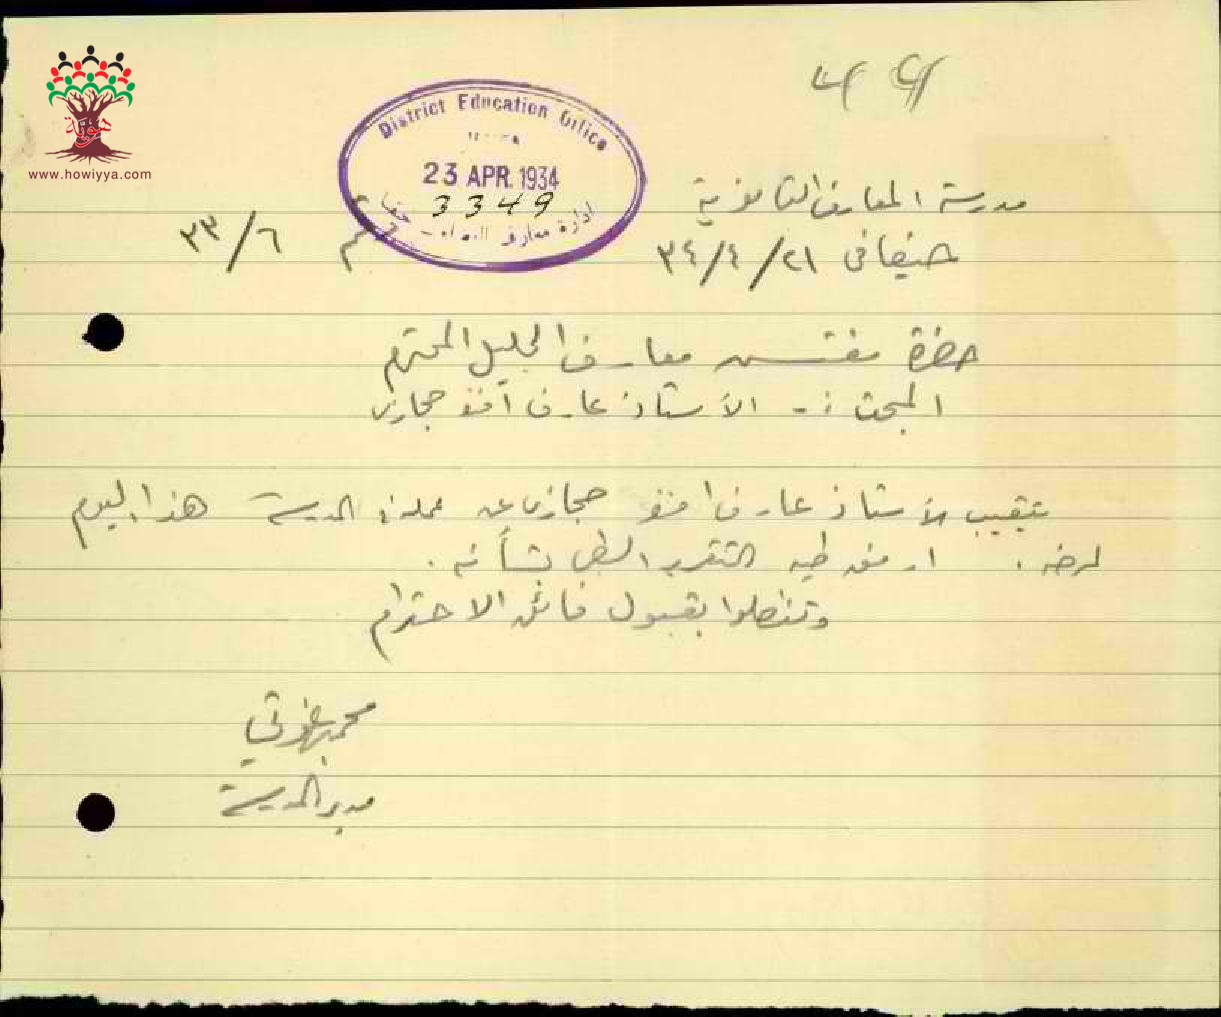 www.howiyya.com
District Education Office
23 APR. 1934
3349
ادارة معارف حيفا
مدرسة المعارف الثانوية
حيفا في ٢١/٤/٣٤
٣٣/٦
حضرة مفتش معارف الجليل المحترم
المبحث :- الأستاذ عارف افندي حجازي
تغيب الأستاذ عارف افندي حجازي عن عمله في المدرسة هذا اليوم
لمرضه. ارفق طيه التقرير الطبي بشأنه.
وتفضلوا بقبول فائق الاحترام
محمد
مدير المدرسة